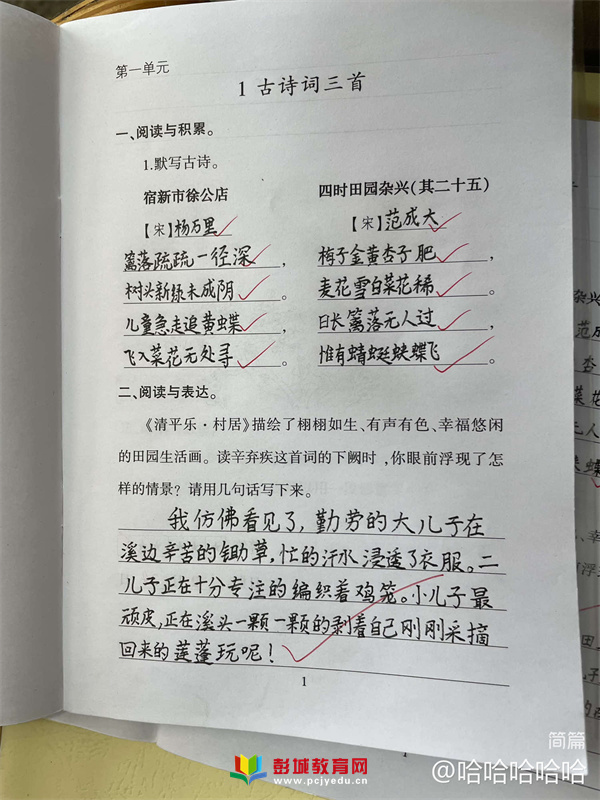 第一单元
1 古诗词三首
一、阅读与积累。
1.默写古诗。
宿新市徐公店
【宋】杨万里
篱落疏疏一径深，
树头新绿未成阴。
儿童急走追黄蝶，
飞入菜花无处寻。
四时田园杂兴(其二十五)
【宋】范成大
梅子金黄杏子肥，
麦花雪白菜花稀。
日长篱落无人过，
惟有蜻蜓蛱蝶飞。
二、阅读与表达。
《清平乐·村居》描绘了栩栩如生、有声有色、幸福悠闲
的田园生活画。读辛弃疾这首词的下阕时，你眼前浮现了怎
样的情景？请用几句话写下来。
我仿佛看见了，勤劳的大儿子在
溪边辛苦的锄草，忙的汗水浸透了衣服。二
儿子正在十分专注的编织着鸡笼。小儿子最
顽皮，正在溪头一颗一颗的剥着自己刚刚采摘
回来的莲蓬玩呢！
1
杂兴
范成
杏
菜花
无人
蝶
1
简篇
@哈哈哈哈哈
彭城教育网
www.pcjyedu.cn